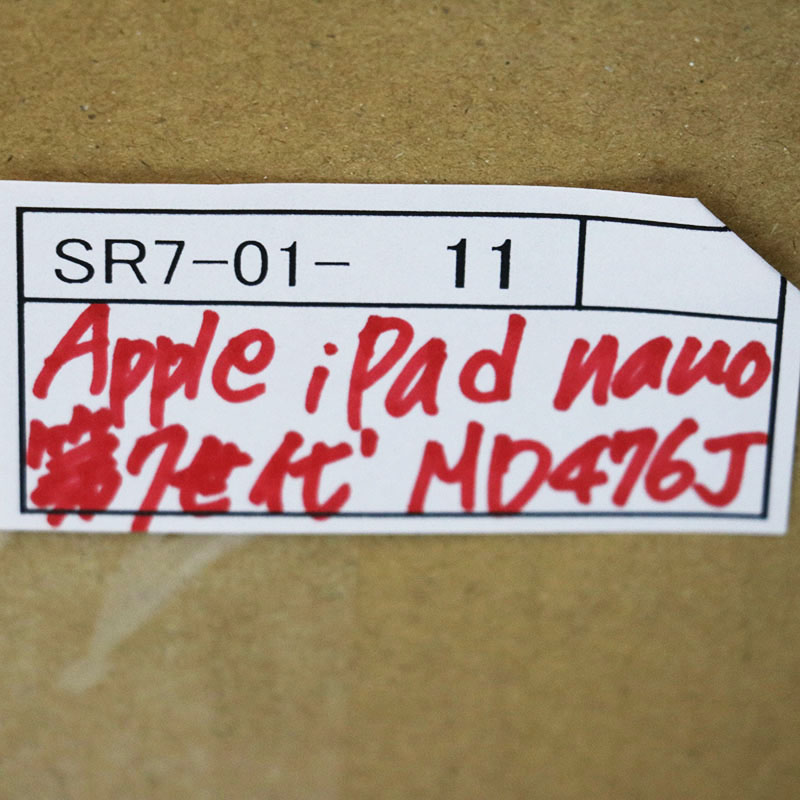 SR7-01- 11
Apple iPad nano
第7世代 MD476J